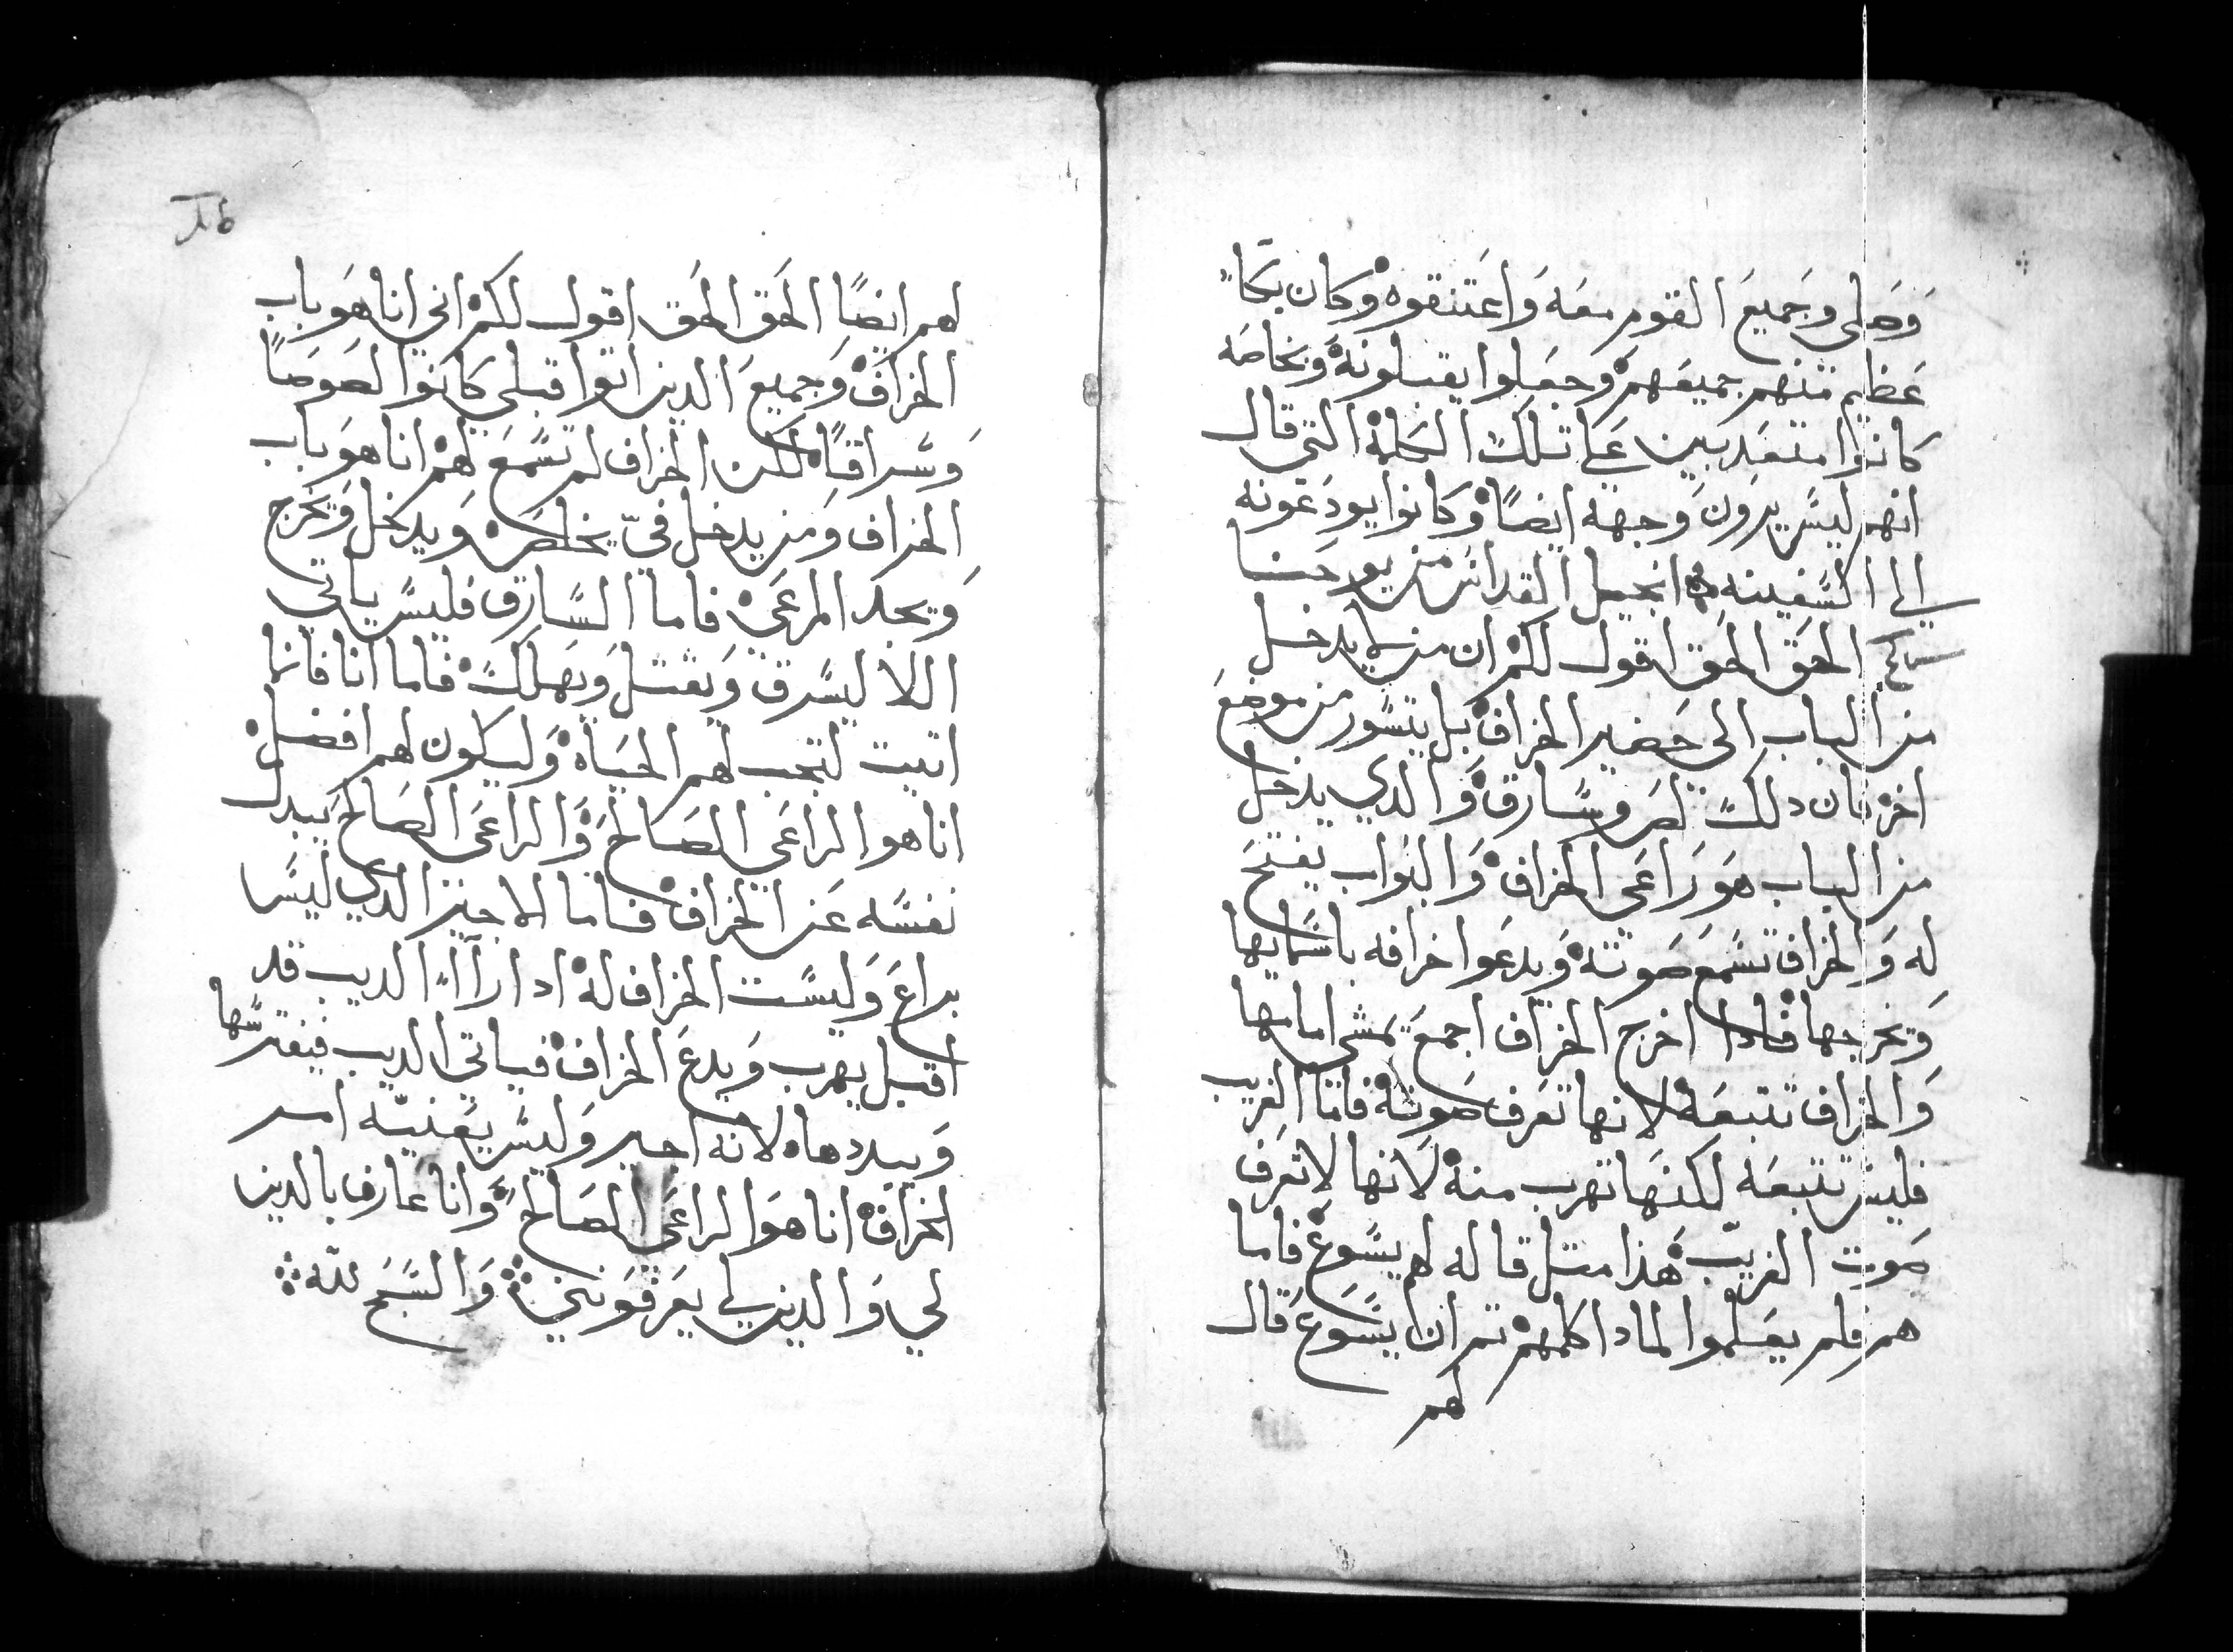 وَصَلى وجَميعَ القوم معَه وَاعَتنقوه وكان بكاً
عَظيم منهم جميعَهم وجعَلوا يقبلونه وَبخاصَه
كانوا متعَدبين عَلى تلك الكلمة التي قال
انهم ليسَ يرون وَجهه ايضاً وكانوا يودعَونه
الي السَفينه انجيل القداس من يوحَنا
الحَق الحَق اقول لكم ان من لا يدخل
من الباب الى حَضير الخراف بل يتسَور من موضعَ
اخر فان دلك لص وسَارق وَالدي يدخل
من الباب هوَ رَاعَي الخراف وَالبَواب يفتح
له وَالخراف تسَمع صَوته وَيدعَوا خرافه باسَمايها
وَتخرجها فادا اخرج الخراف اجمعَ تمشى امامها
وَالخراف تتبعَه لانها تعَرف صَوته فاما الغريب
فليسَ تتبعَه لكنها تهرب منه لانها لا تعَرف
صَوت الغريب هَذا مثل قاله لهم يسَوعَ فاما
هم فلم يعَلموا لمادا كلمهم تم ان يسَوعَ قال
لهم
لهم ايضاً الحَق الحَق اقول لكم اني انا هوَ باب
الخراف وَجميعَ الدين اتوا قبلي كانوا لصَوصَاً
وَسَراقاً لكن الخراف لم تسَمعَ لهم انا هوَ باب
الخراف وَمن يدخل فيّ يخلصَ وَيدخل وَيخرج
وَيجد المرعَى فاما السَارق فليسَ ياتي
اللا ليسَرق وَيقتل وَيهلك فاما انا فانما
اتيت لتجب لهم الحَياه وَليكون لهم افضل
انا هو الراعَي الصَالح وَالراعَي الصَالح يَبدل
نفسَه عَن الخراف فاما الاجير الدي ليسَ
براعَ وَليسَت الخراف له ادا راآ الديب قد
اقبل يهرب وَيدعَ الخراف فياتي الديب فيفترسَها
وَيبددها لانه اجير وَليسَ يعَنيه امر
الخراف انا هوَ الراعَي الصَالح وَانا عَارف بالدين
لي وَالدين لي يعَرفوَنني وَالسَبح لله